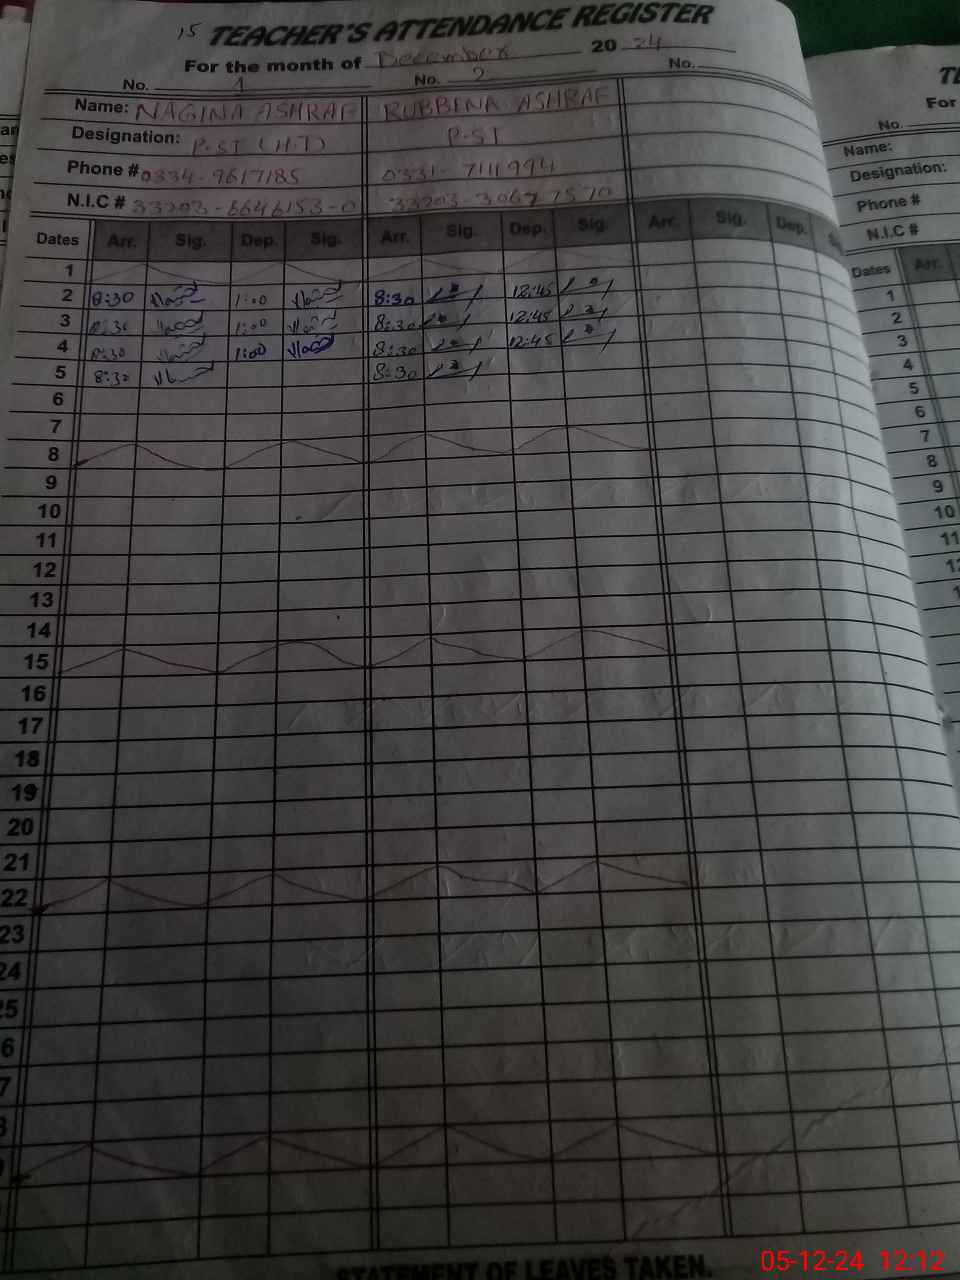 15 TEACHER'S ATTENDANCE REGISTER
For the month of December 2024
No. 1 No. 2 No.
Name: NAGINA ASHRAF RUBBINA ASHRAF
Designation: P.ST (H.T) P.ST
Phone # 0334-9617185 0331-7111994
N.I.C # 33203-6646153-0 33203-30677570
Dates Arr. Sig. Dep. Sig. Arr. Sig. Dep. Sig. Arr. Sig. Dep.
1
2 8:30 1:00 8:30 12:45
3 8:30 1:00 8:30 12:45
4 8:30 1:00 8:30 12:45
5 8:30 8:30
6
7
8
9
10
11
12
13
14
15
16
17
18
19
20
21
22
23
24
25
6
7
STATEMENT OF LEAVES TAKEN.
For
No.
Name:
Designation:
Phone #
N.I.C #
Dates Arr.
1
2
3
4
5
6
7
8
9
10
11
05-12-24 12:12